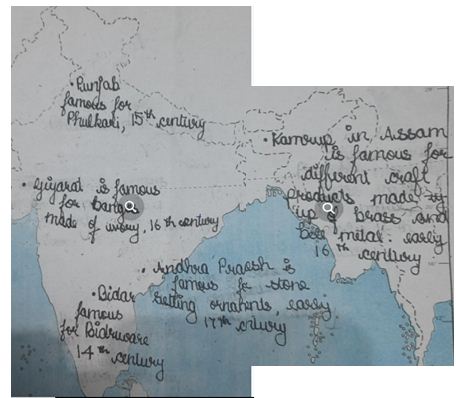 • Punjab
famous for
Phulkari, 15th century
• Kamrup in Assam
is famous for
different craft
products made by
up of brass and
bell mital. early
16th century
• Gujarat is famous
for bangles
made of ivory, 16th century
• Andhra Praesh is
famous for stone
setting ornaments, early
17th century
• Bidar
famous
for Bidriware
14th century